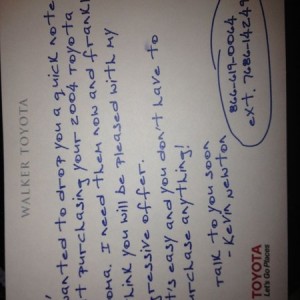 WALKER TOYOTA
wanted to drop you a quick note
t purchasing your 2004 Toyota
oma. I need them now and frankl
hink you will be pleased with my
gressive offer.
t's easy and you don't have to
urchase anything!
Talk to you soon
- Kevin Newton
866-619-0064
ext. 7686-14249
TOYOTA
Let's Go Places